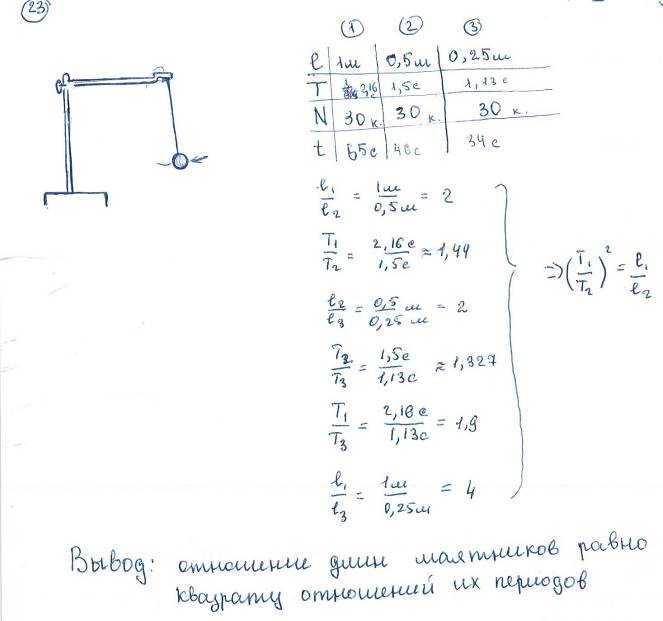 23
① ② ③
l 1м 0,5м 0,25м
T 2,16 с 1,5с 1,13с
N 30 к. 30 к. 30 к.
t 65с 46с 34с
l₁/l₂ = 1м/0,5м = 2
T₁/T₂ = 2,16с/1,5с ≈ 1,44
l₂/l₃ = 0,5м/0,25м = 2
T₂/T₃ = 1,5с/1,13с ≈ 1,327
T₁/T₃ = 2,16с/1,13с = 1,9
l₁/l₃ = 1м/0,25м = 4
⇒ (T₁/T₂)² = l₁/l₂
Вывод: отношение длин маятников равно
квадрату отношений их периодов